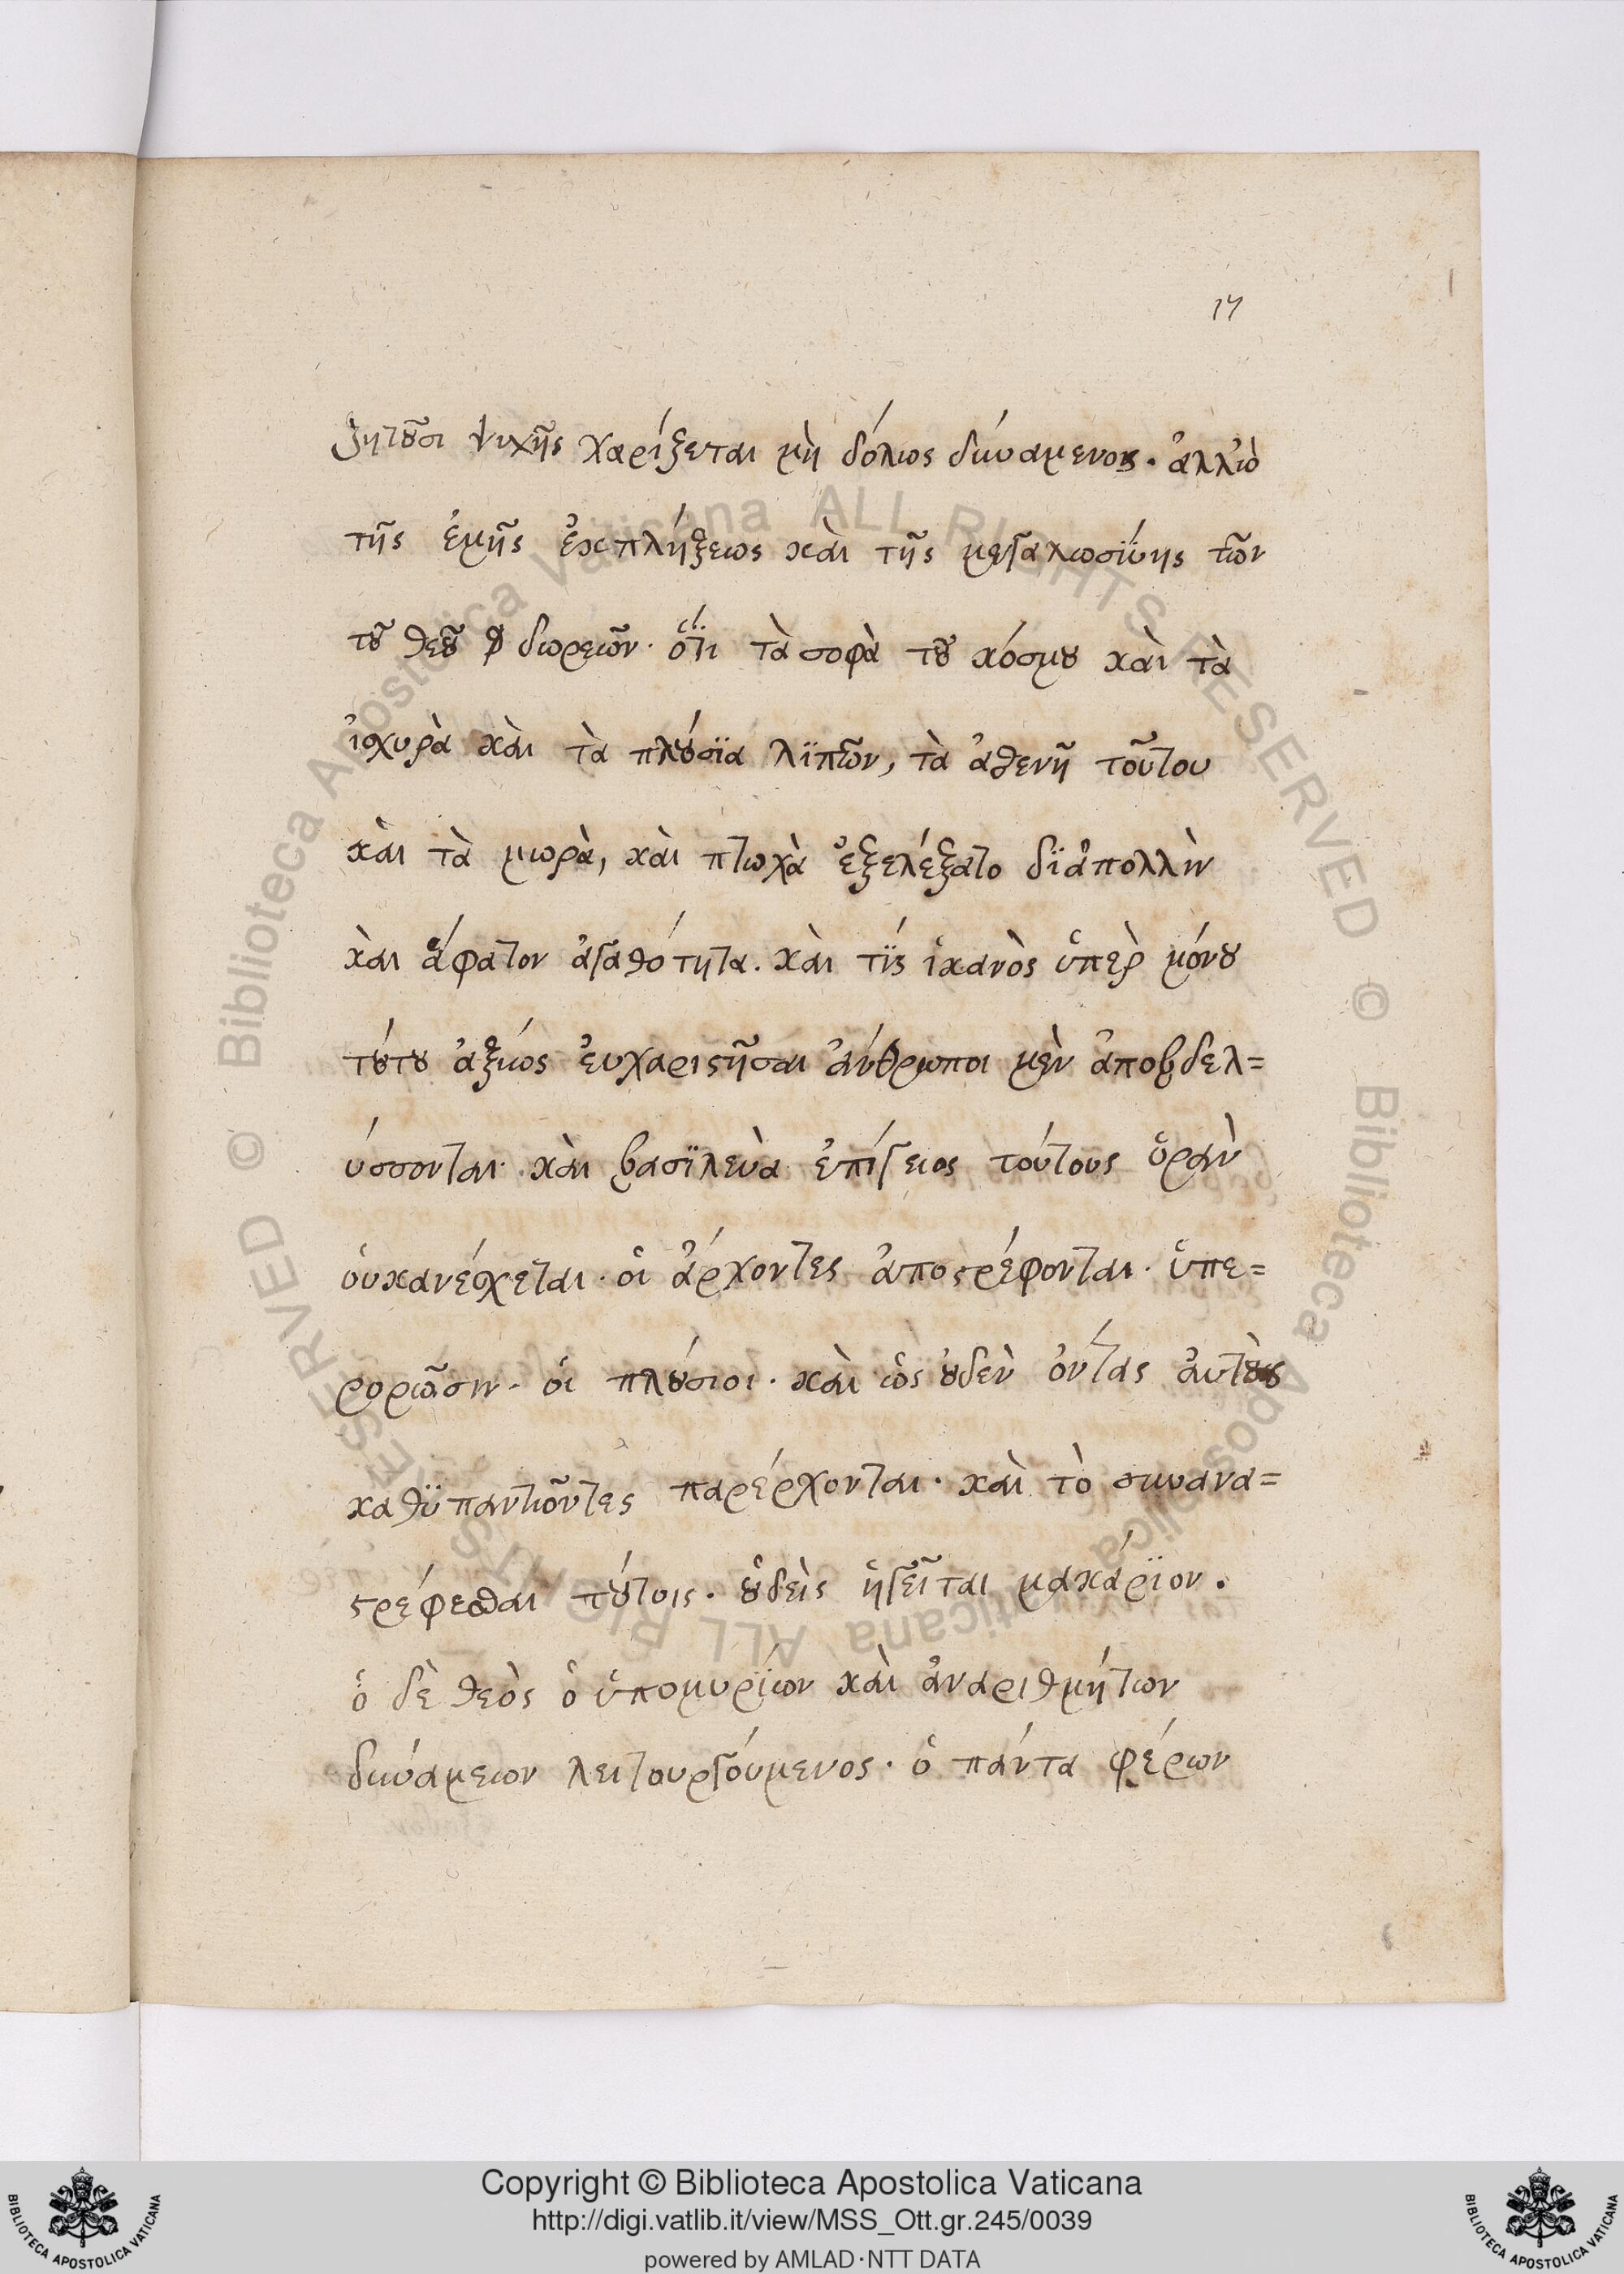 17
ζητοῦσι ψυχῆς χαρίζεται μὴ δόλιος δυνάμενος. ἀλλὼ
τῆς ἐμῆς ἐκπλήξεως καὶ τῆς μεγαλωσΰνης τῶν
τοῦ θεοῦ δωρεῶν· ὅτι τὰ σοφὰ τοῦ κόσμου καὶ τὰ
ἰσχυρὰ καὶ τὰ πλούσϊα λϊπῶν, τὰ ἀσθενῆ τοῦτου
καὶ τὰ μωρὰ, καὶ πτωχὰ ἐξελέξατο δϊἀπολλὴν
καὶ ἄφατον ἀγαθότητα. καὶ τίς ἱκανὸς ὑπὲρ μόνου
τούτου ἀξίως ἐυχαριστῆσαι ἄνθρωποι μὲν ἀποβδελ=
ύσσονται· καὶ βασϊλεὺα ἐπίγειος τούτους ὁρᾶν
ὀυκανέχεται· οἱ ἄρχοντες ἀποστρέφονται· ὑπε=
ροριῶσιν· οἱ πλούσιοι· καὶ ὡς ὀυδὲν ὄντας ἀυτοὺς
καθϋπαντιοῦντες παρέρχονται· καὶ τὸ συνανα=
στρέφεσθαι τούτοις· ὀυδεὶς ἡγεῖται μακάρϊον.
ὁ δὲ θεὸς ὁ ὑπομυρΐων καὶ ἀναριθμήτων
δυνάμεων λειτουργούμενος· ὁ πάντα φέρων
Copyright © Biblioteca Apostolica Vaticana
http://digi.vatlib.it/view/MSS_Ott.gr.245/0039
powered by AMLAD·NTT DATA
BIBLIOTECA APOSTOLICA VATICANA
BIBLIOTECA APOSTOLICA VATICANA
Biblioteca Apostolica Vaticana ALL RIGHTS RESERVED ©
Biblioteca Apostolica Vaticana ALL RIGHTS RESERVED ©